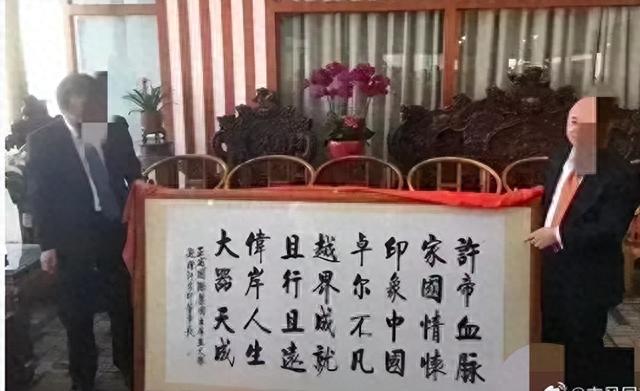 許帝血脈
家國情懷
印象中國
卓尔不凡
越界成就
且行且遠
偉岸人生
大器天成